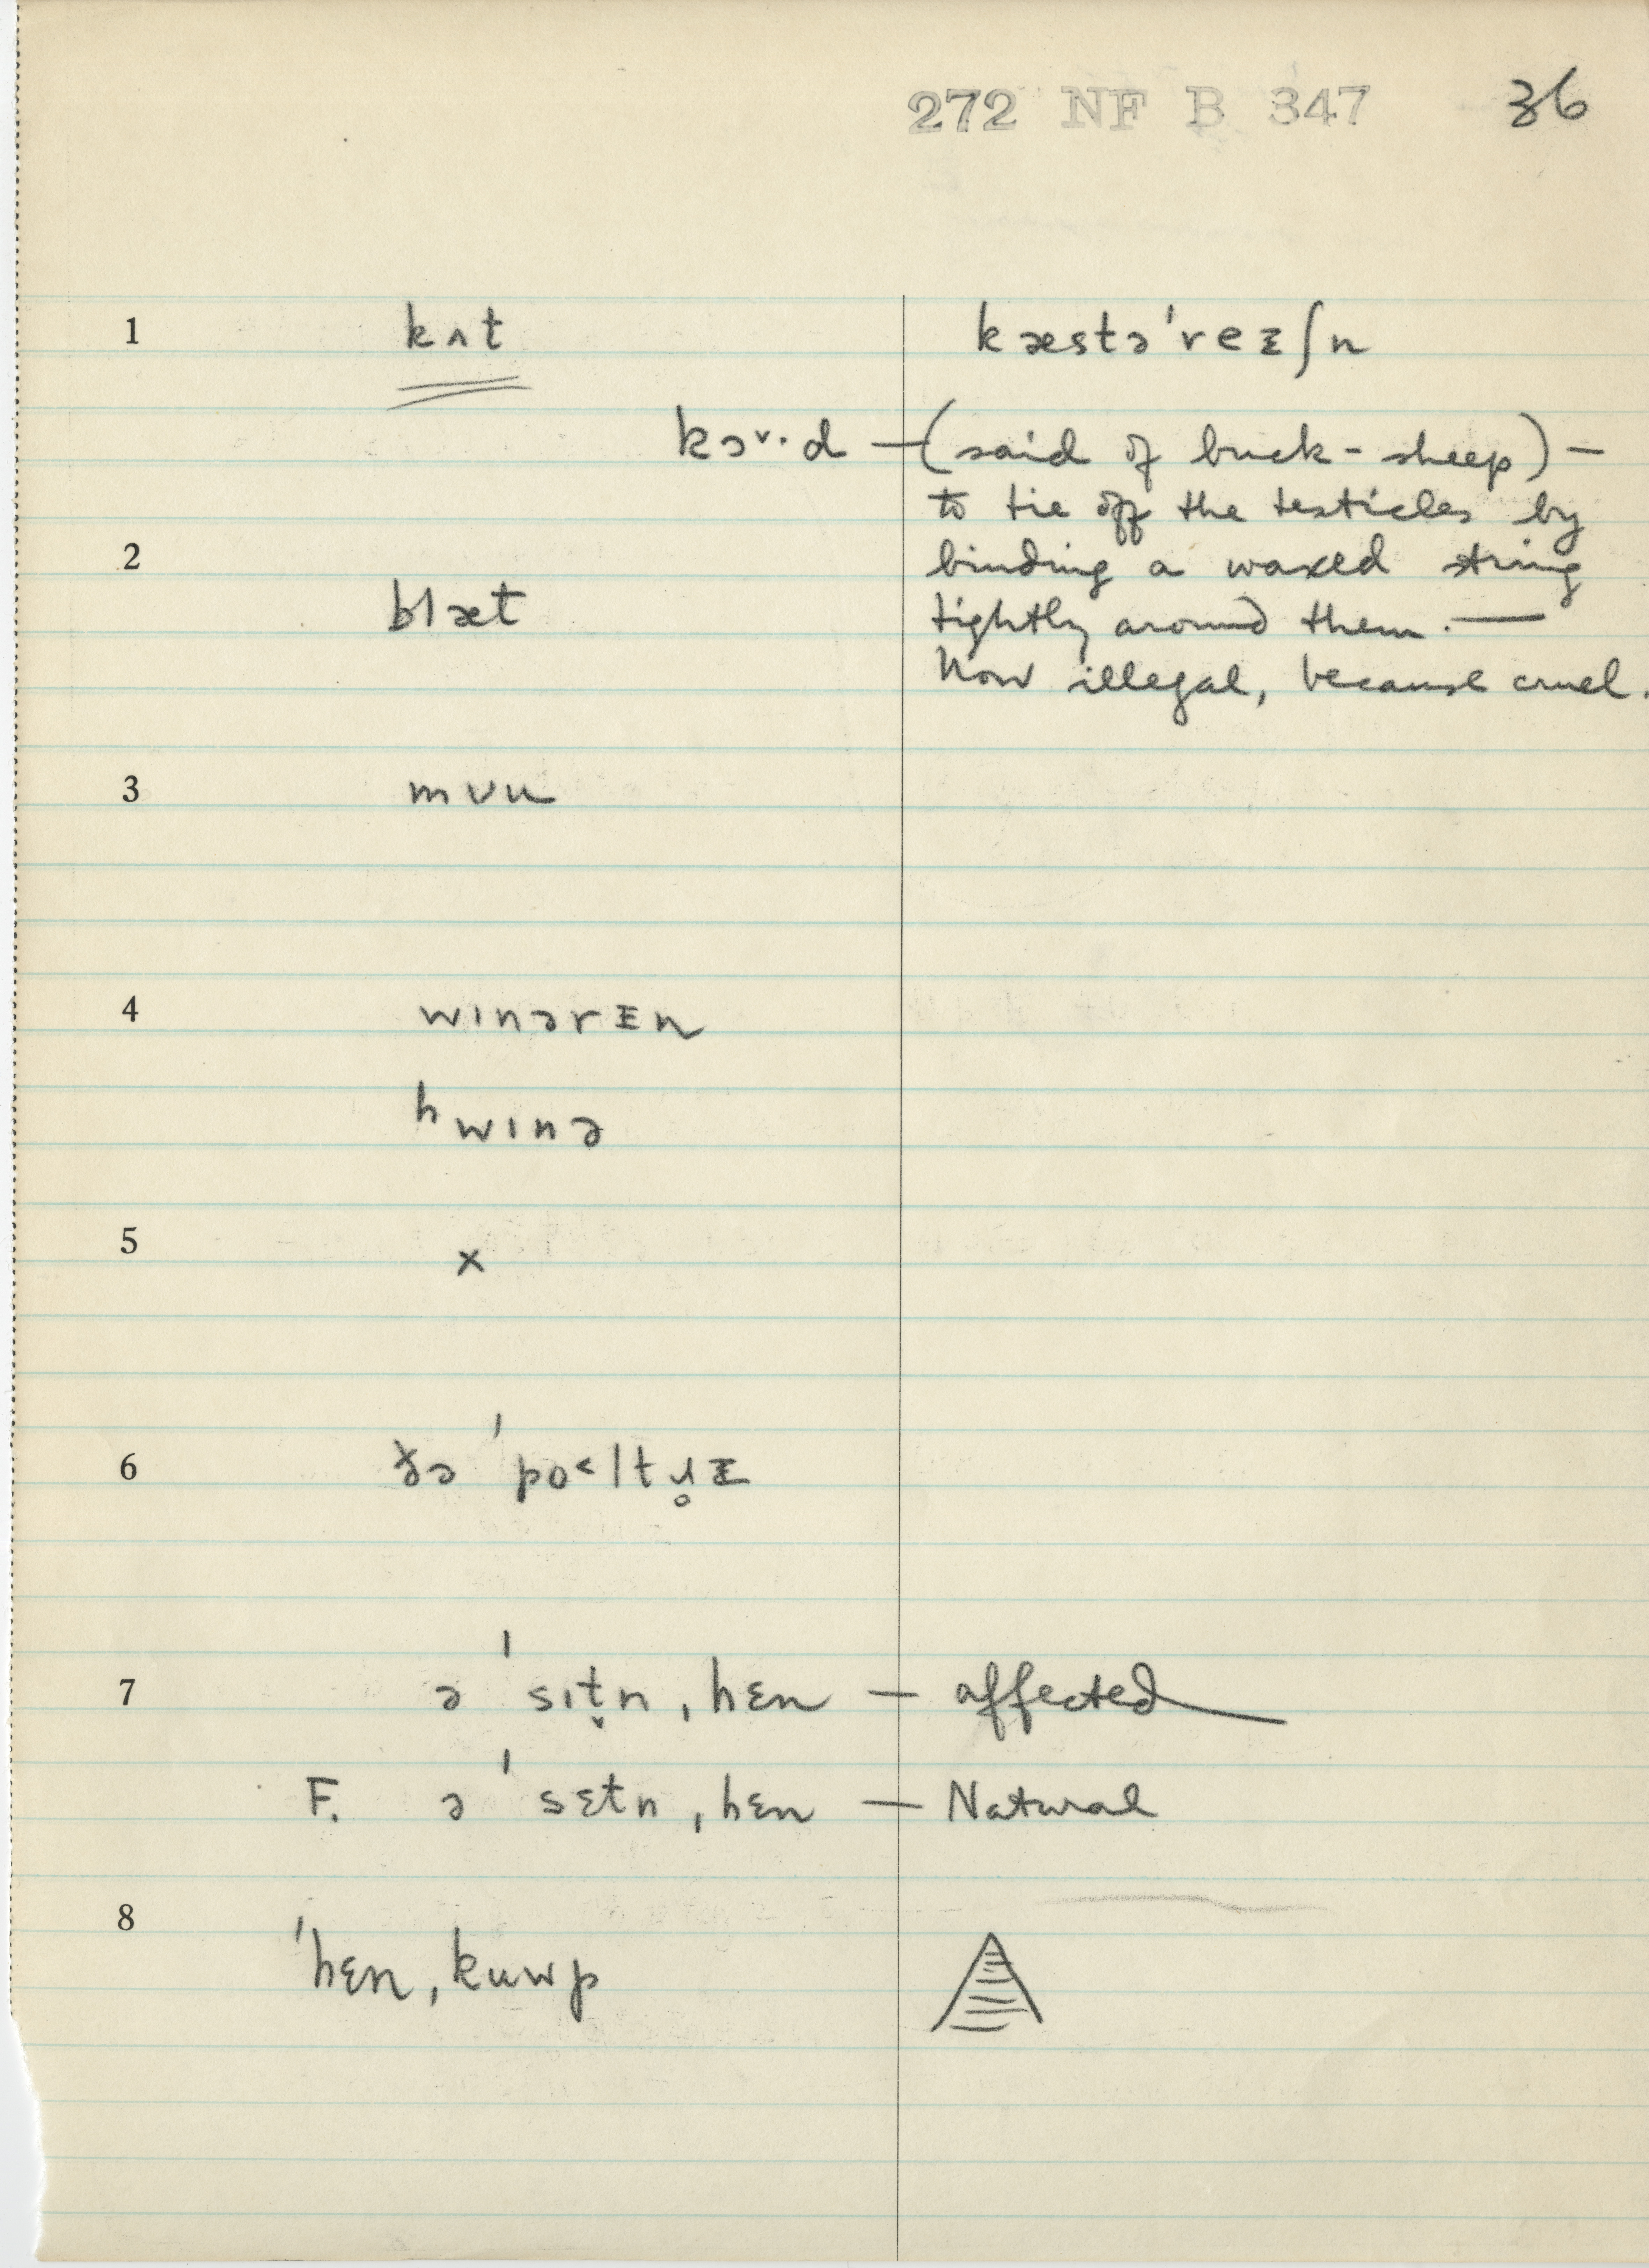 272 NF B 347 36
1 kʌt kæstə'reᵻʃn
kɔ˅·d — (said of buck-sheep) —
to tie off the testicles by
2 binding a waxed string
blæt tightly around them. —
Now illegal, because cruel.
3 mʋu
4 wɪnərᵻn
ʰwɪnə
5 x
6 ðə 'po˂ltɹ̥ᵻ
7 ə 'sɪt̬n ˌhɛn — affected
F. ə 'sɛtn ˌhɛn — Natural
8 'hɛn ˌkuwp